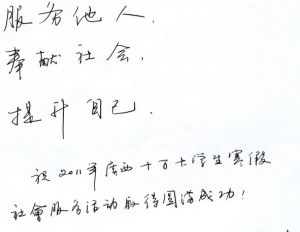 服务他人,
奉献社会,
提升自己.
祝2011年广西十万大学生寒假
社會服务活动取得圆满成功!